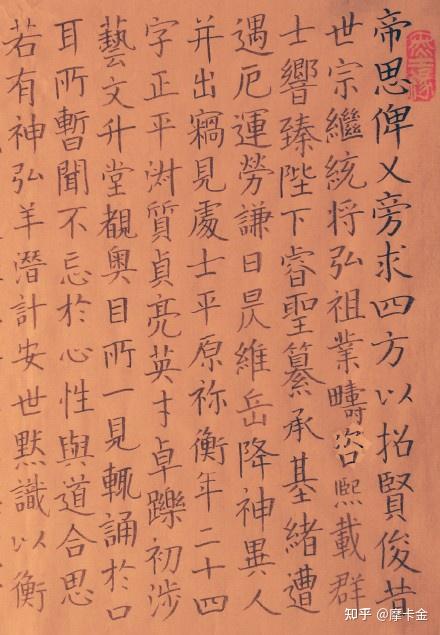 帝思俾乂旁求四方以招賢俊昔
世宗繼統将弘祖業疇咨熙載群
士響臻陛下睿聖纂承基緒遭
遇厄運勞謙日昃維岳降神異人
并出竊見處士平原祢衡年二十四
字正平淑質貞亮英才卓躒初涉
藝文升堂覩奥目所一見輒誦於口
耳所暫聞不忘於心性與道合思
若有神弘羊潛計安世默識以衡
知乎 @摩卡金